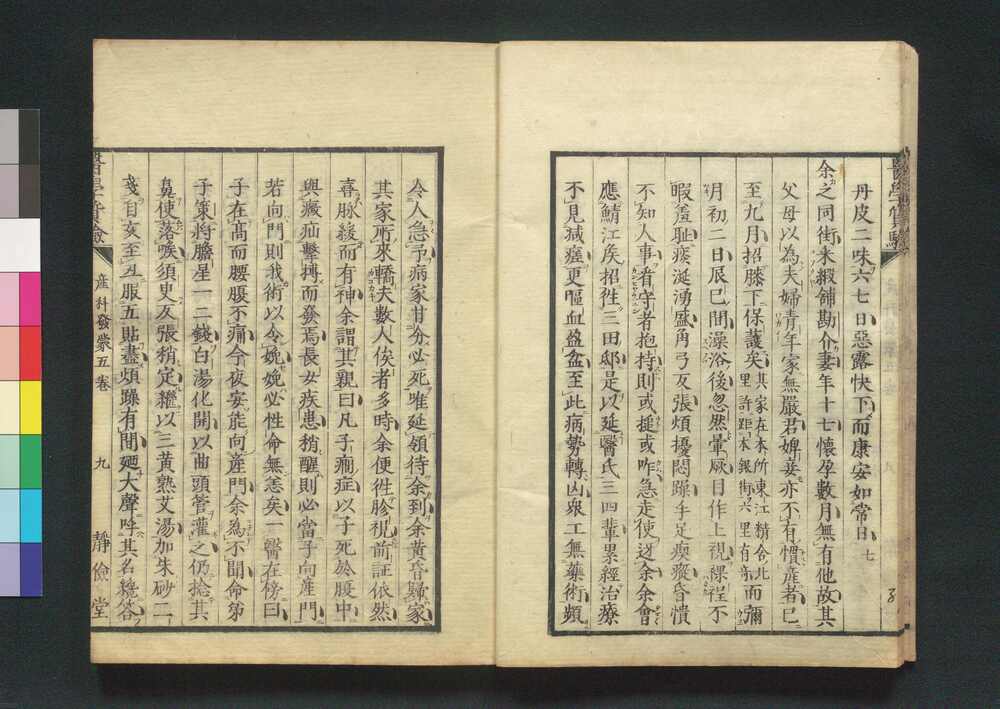 丹皮二味六七日惡露快下而康安如常日七
余之同街米緞舖勘介妻年十七懷孕數月無有他故其
父母以為夫婦青年家無嚴君婢妾亦不有慣産者已
至九月招膝下保護矣其家在本所東江精舍北里許距本銀街六里有奇而彌
月初二日辰巳間澡浴後忽然暈厥目作上視裸裎不
暇羞耻痰涎湧盛角弓反張煩擾悶躁手足瘈瘲昏憒
不知人事看守者抱持則或搥或咋急走使迓余余會
應鯖江矦招徃三田邸是以延醫氏三四輩累經治療
不見減瘥更嘔血盈盆至此病勢轉凶衆工無藥術頻
令人急予病家甘分必死唯延頸待余到余黄昏歸家
其家所來轎夫數人俟者多時余便徃胗視前証依然
喜脉緩而有神余謂其親曰凡子癇症以子死於腹中
與癜疝擊搏而發焉長女疾患稍醒則必當子向産門
若向門則我術以令娩娩必性命無恙矣一醫在傍曰
子在髙而腰腹不痛今夜安能向産門余為不聞命弟
子策將膽星一二錢白湯化開以曲頭管灌之仍捻其
鼻使落喉須臾反張稍定繼以三黄熟艾湯加朱砂二
戔自亥至丑服五貼盡煩躁有間廼大聲呼其名纔答
醫學實驗
産科發蒙五卷
九
靜儉堂